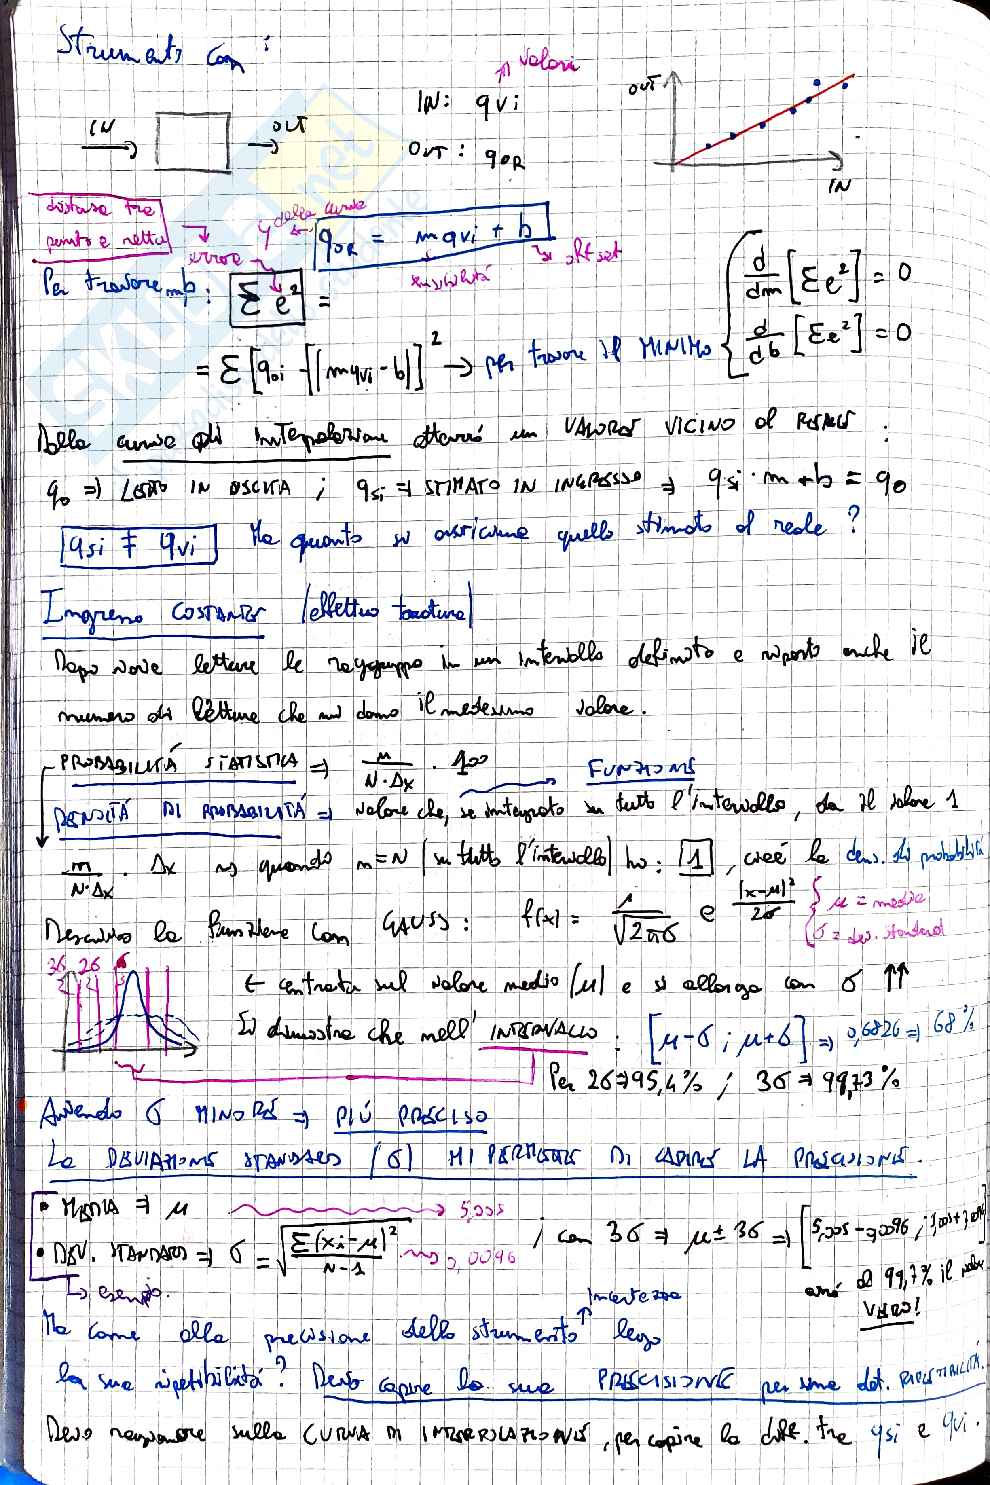 Strumento con :
IN
OUT
IN: qvi
valori
OUT: qOR
OUT
IN
distanza tra
punto e retta
errore
y della curva
qOR = mqvi + b
sensibilità
offset
Per trovare m,b : Σ e² =
d/dm [Σe²] = 0
d/db [Σe²] = 0
= Σ [qoi - (mqvi - b)]² → per trovare il MINIMO
Dalla curva di interpolazione otterrò un VALORE VICINO al REALE :
qo ⇒ LETTO IN USCITA ; qsi ⇒ STIMATO IN INGRESSO ⇒ qsi · m + b = qo
qsi ≠ qvi Ma quanto si avvicina quello stimato al reale ?
Ingresso COSTANTE (effettuo taratura)
Dopo varie letture le raggruppo in un intervallo definito e riporto anche il
numero di letture che mi danno il medesimo valore.
PROBABILITÁ STATISTICA ⇒ n/N·Δx · 100
FUNZIONE
DENSITÁ DI PROBABILITÁ ⇒ valore che, se integrato su tutto l'intervallo, da il valore 1
n/N·Δx · Δx quando n=N (su tutto l'intervallo) ho: 1 , cioè la dens. di probabilità
Descrivo la funzione con GAUSS: f(x) = 1/√2πσ e (x-μ)²/2σ
μ = media
σ = dev. standard
3σ 2σ σ
È centrata sul valore medio (μ) e si allarga con σ ↑↑
Si dimostra che nell' INTERVALLO : [μ-σ ; μ+σ] ⇒ 0,6826 ⇒ 68%
Per 2σ ⇒ 95,4% ; 3σ ⇒ 99,73%
Avendo σ MINORE ⇒ PIÚ PRECISO
La DEVIAZIONE STANDARD (σ) MI PERMETTE DI CAPIRE LA PRECISIONE.
• MEDIA ⇒ μ 5,005
• DEV. STANDARD ⇒ σ = √Σ(xi-μ)²/N-1 0,0096 ; con 3σ ⇒ μ ± 3σ ⇒
↳ esempio.
avrò al 99,7% il valore
VERO!
Ma come alla precisione dello strumento lego
Incertezza
la sua ripetibilità? Devo capire la sua PRECISIONE per una det. RIPETIBILITÁ.
Devo ragionare sulla CURVA DI INTERPOLAZIONE, per capire la diff. tra qsi e qvi.